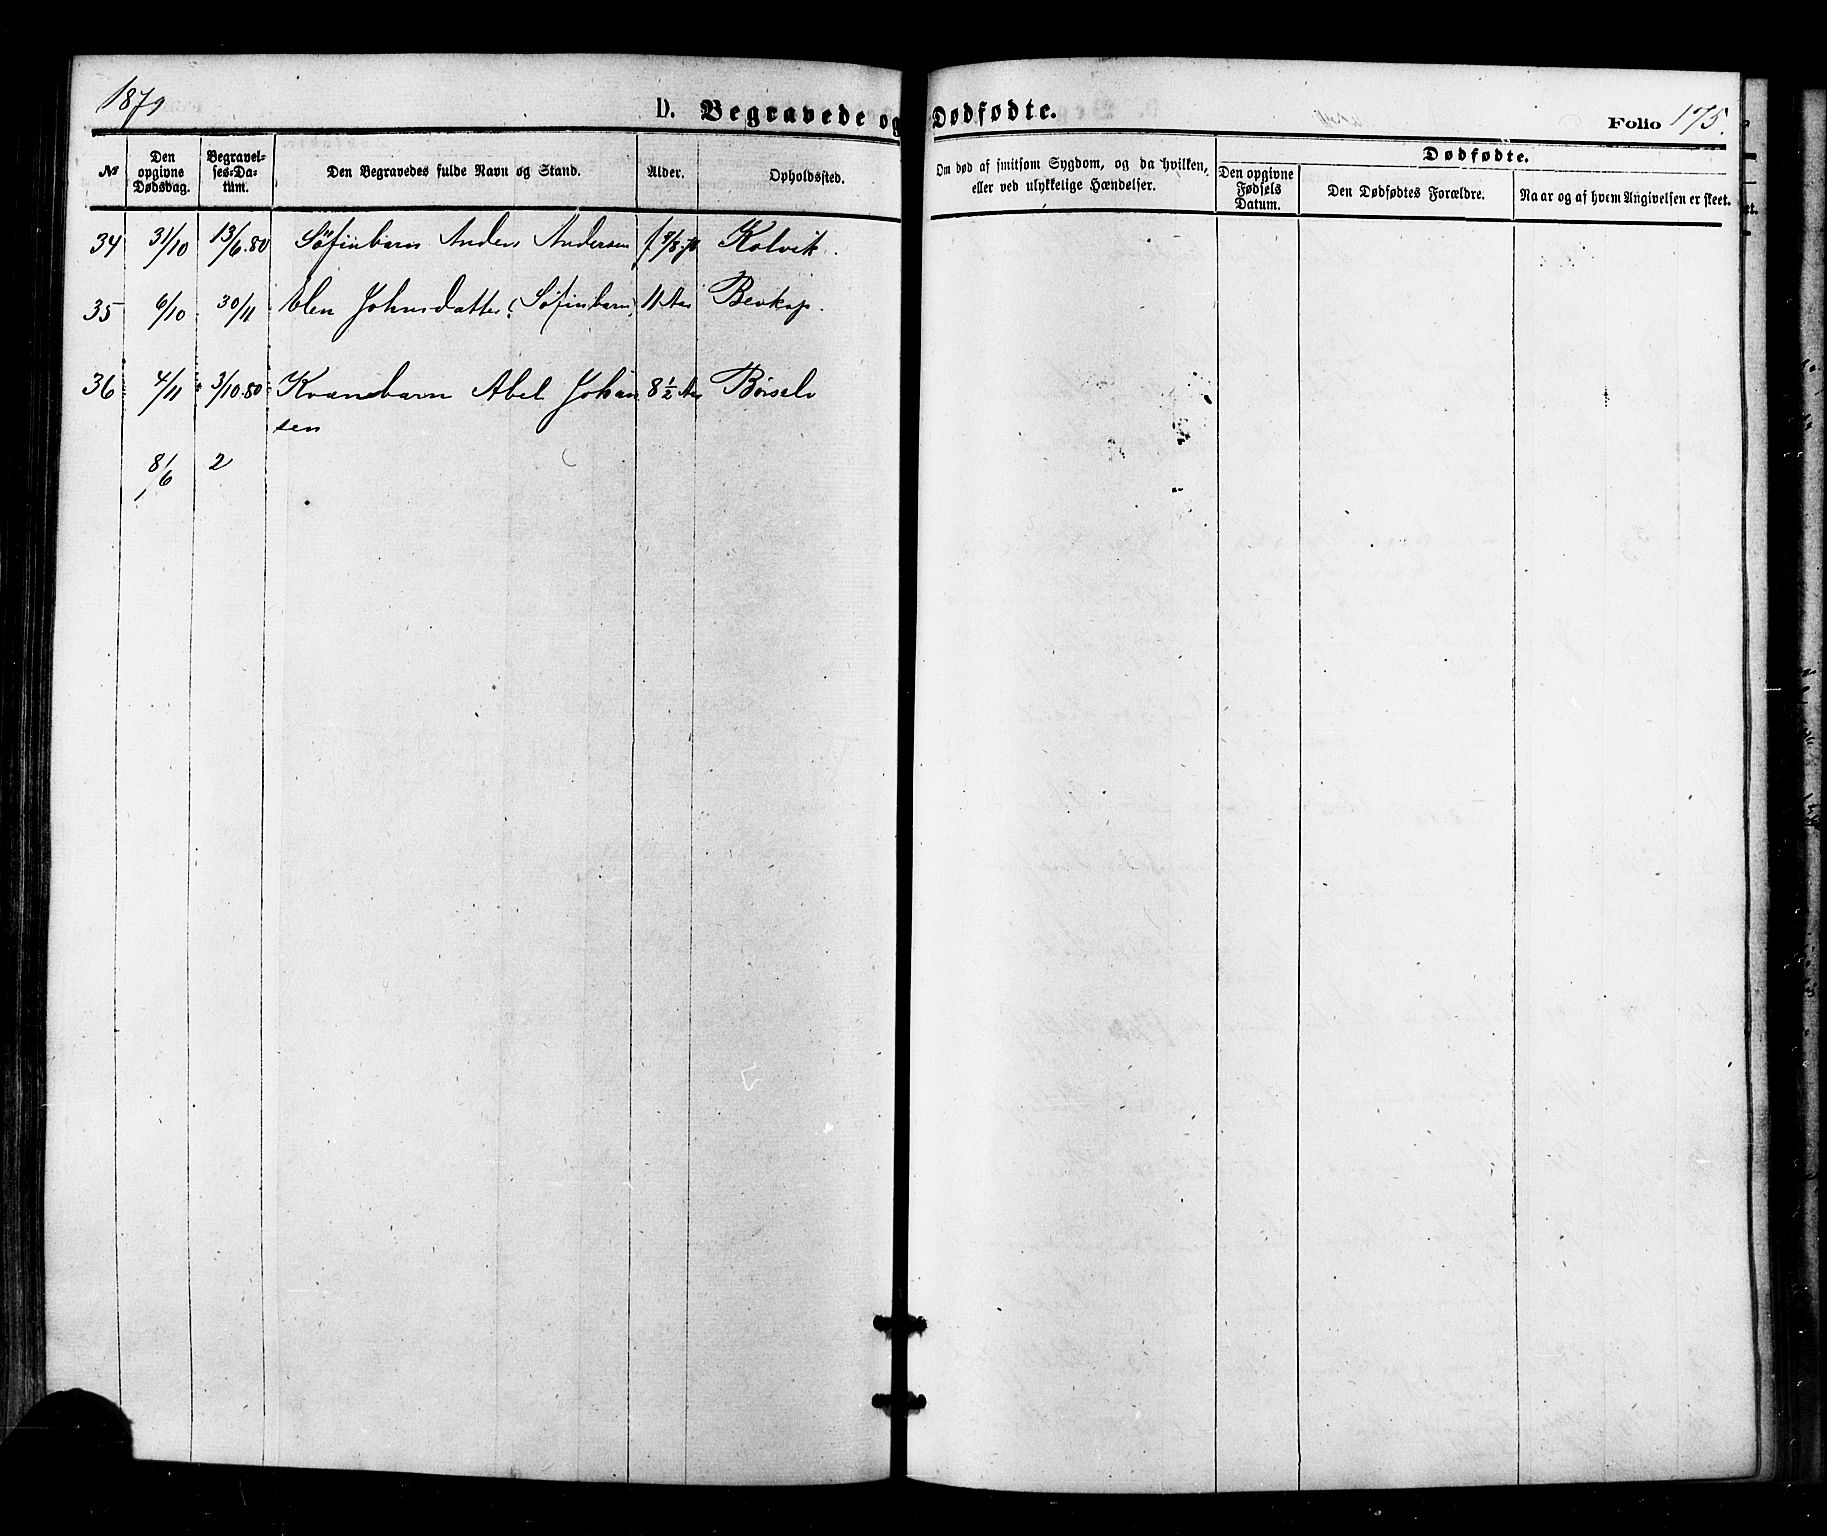 1879
D. Begravede og Dødfødte.
Folio 175.
№
Den opgivne Dødsdag.
Begravelses-Datum.
Den Begravedes fulde Navn og Stand.
Alder.
Opholdssted.
Om død af smitsom Sygdom, og da hvilken, eller ved ulykkelige Hændelser.
Dødfødte.
Den opgivne Fødsels Datum.
Den Dødfødtes Forældre.
Naar og af hvem Angivelsen er skeet.
34 31/10 13/6.80 Søfinbarn Anders Andersen Kolvik.
35 6/10 30/11 Elen Johnsdatter (Søfinbarn) 11 Aar
36 4/11 3/10.80 Kvænbarn Abel Johan 8 1/2 Aar Børselv
sen
8/6 2